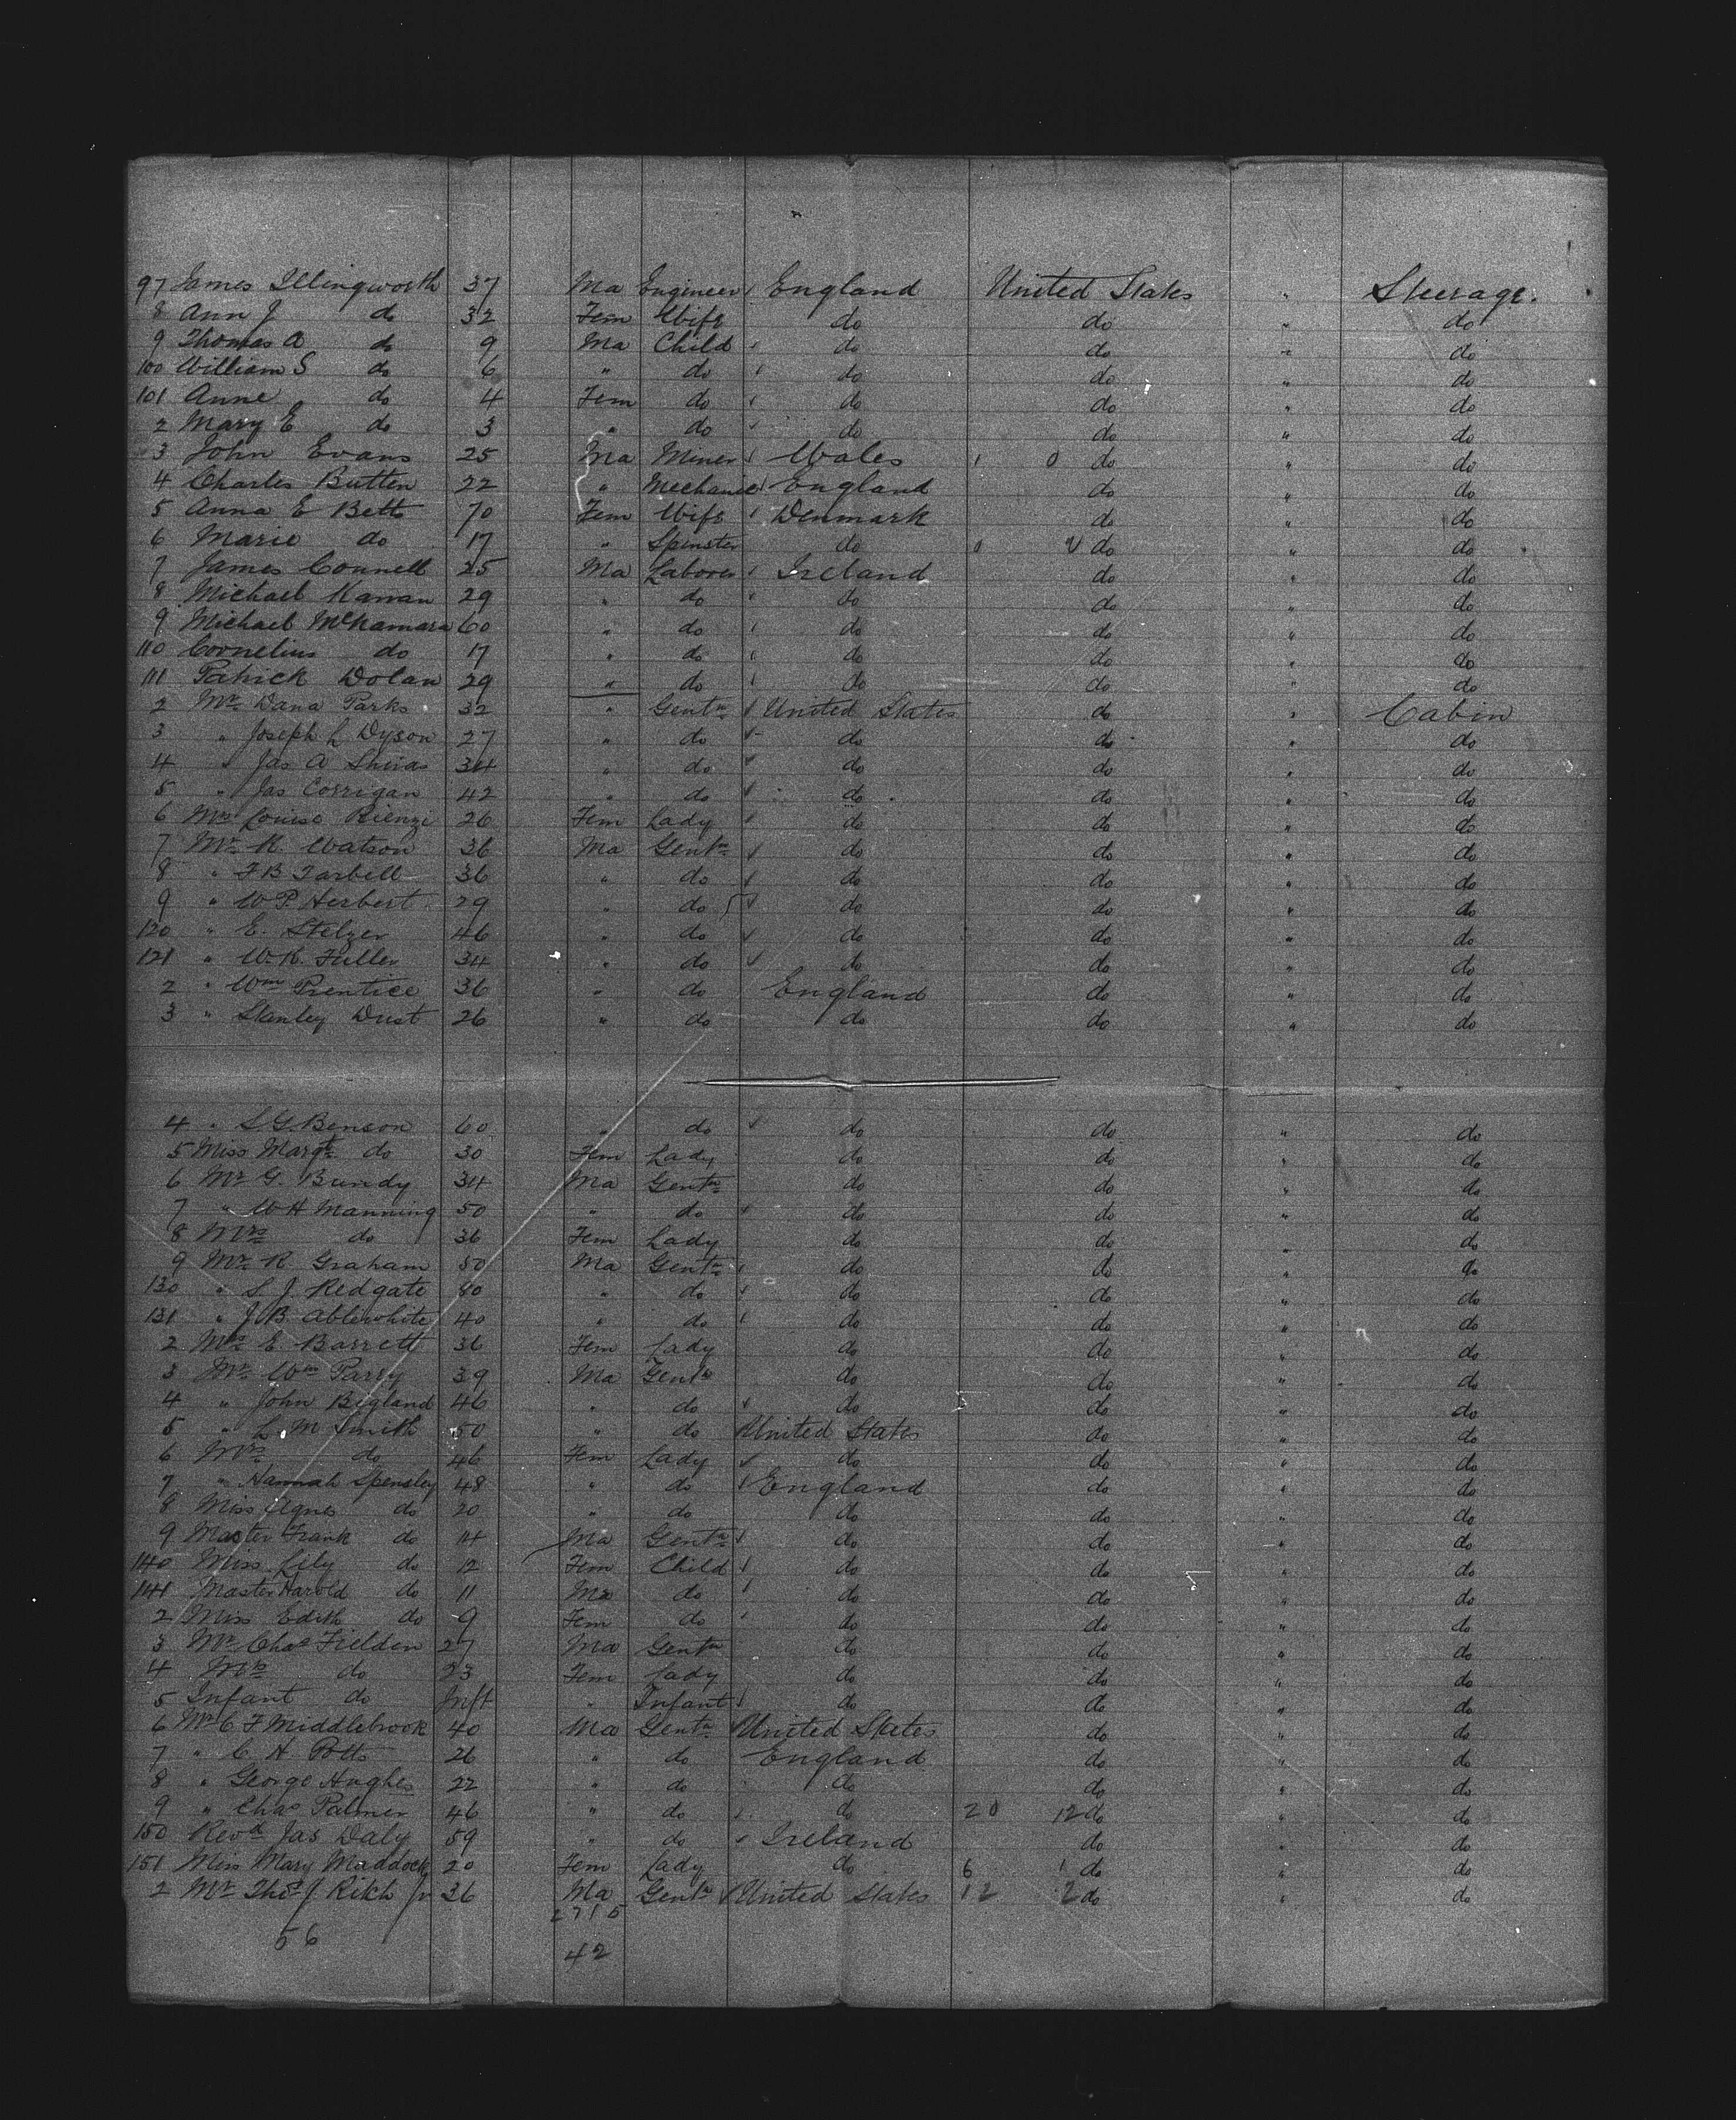 97 James Illingworth 37 Ma Engineer England United States " Steerage.
8 Ann J do 32 Fem Wife do do " do
9 Thomas A do 9 Ma Child do do " do
100 William S do 6 " do do do " do
101 Anne do 4 Fem do do do " do
2 Mary E do 3 " do do do " do
3 John Evans 25 Ma Miner Wales do " do
4 Charles Butten 22 " Mechanic England do " do
5 Anna E Betts 70 Fem Wife Denmark do " do
6 Marie do 17 " Spinster do do " do
7 James Connell 25 Ma Laborer Ireland do " do
8 Michael 29 " do do do " do
9 Michael McNamara 60 " do do do " do
110 Cornelius do 17 " do do do " do
111 Patrick Dolan 29 " do do do " do
2 Mr Dana Parks 32 " Gentn United States do " Cabin
3 " Joseph L Dyson 27 " do do do " do
4 " Jas A Shiras 34 " do do do " do
5 " Jas Corrigan 42 " do do do " do
6 Mrs Louise Rienzi 26 Fem Lady do do " do
7 Mr R Watson 36 Ma Gentn do do " do
8 " F B Tarbell 36 " do do do " do
9 " W P Herbert 29 " do do do " do
120 " E. Stelzer 46 " do do do " do
121 " W. R. Fuller 34 " do do do " do
2 " Wm Prentice 36 " do England do " do
3 " Stanley Dust 26 " do do do " do
4 " S G Benson 60 " do do do " do
5 Miss Margt do 30 Fem Lady do do " do
6 Mr G. Bundy 34 Ma Gentn do do " do
7 " W H Manning 50 " do do do " do
8 Mrs do 36 Fem Lady do do " do
9 Mr R Graham 50 Ma Gentn do do " do
130 " S. J. Redgate 40 " do do do " do
131 " J B Ablewhite 40 " do do do " do
2 Mrs E. Barrett 36 Fem Lady do do " do
3 Mr Wm Parry 39 Ma Gentn do do " do
4 " John Bigland 46 " do do do " do
5 " L M Smith 50 " do United States do " do
6 Mrs do 46 Fem Lady do do " do
7 " Hannah Spensley 48 " do England do " do
8 Miss Agnes do 20 " do do do " do
9 Master Frank do 14 Ma Gentn do do " do
140 Miss Lily do 12 Fem Child do do " do
141 Master Harold do 11 Ma do do do " do
2 Miss Edith do 9 Fem do do do " do
3 Mr Chas Fielden 27 Ma Gentn do do " do
4 Mrs do 23 Fem Lady do do " do
5 Infant do Inft " Infant do do " do
6 Mr C F Middlebrook 40 Ma Gentn United States do " do
7 " C. H Potts 26 " do England do " do
8 " George Hughes 22 " do do do " do
9 " Chas Palmer 46 " do do 20 12 do " do
150 Revd Jas Daly 59 " do Ireland do " do
151 Miss Mary Maddock 20 Fem Lady do 6 1 do " do
2 Mr Thos J. Ritch Jr 36 Ma Gentn United States 12 2 do " do
2715
56
42